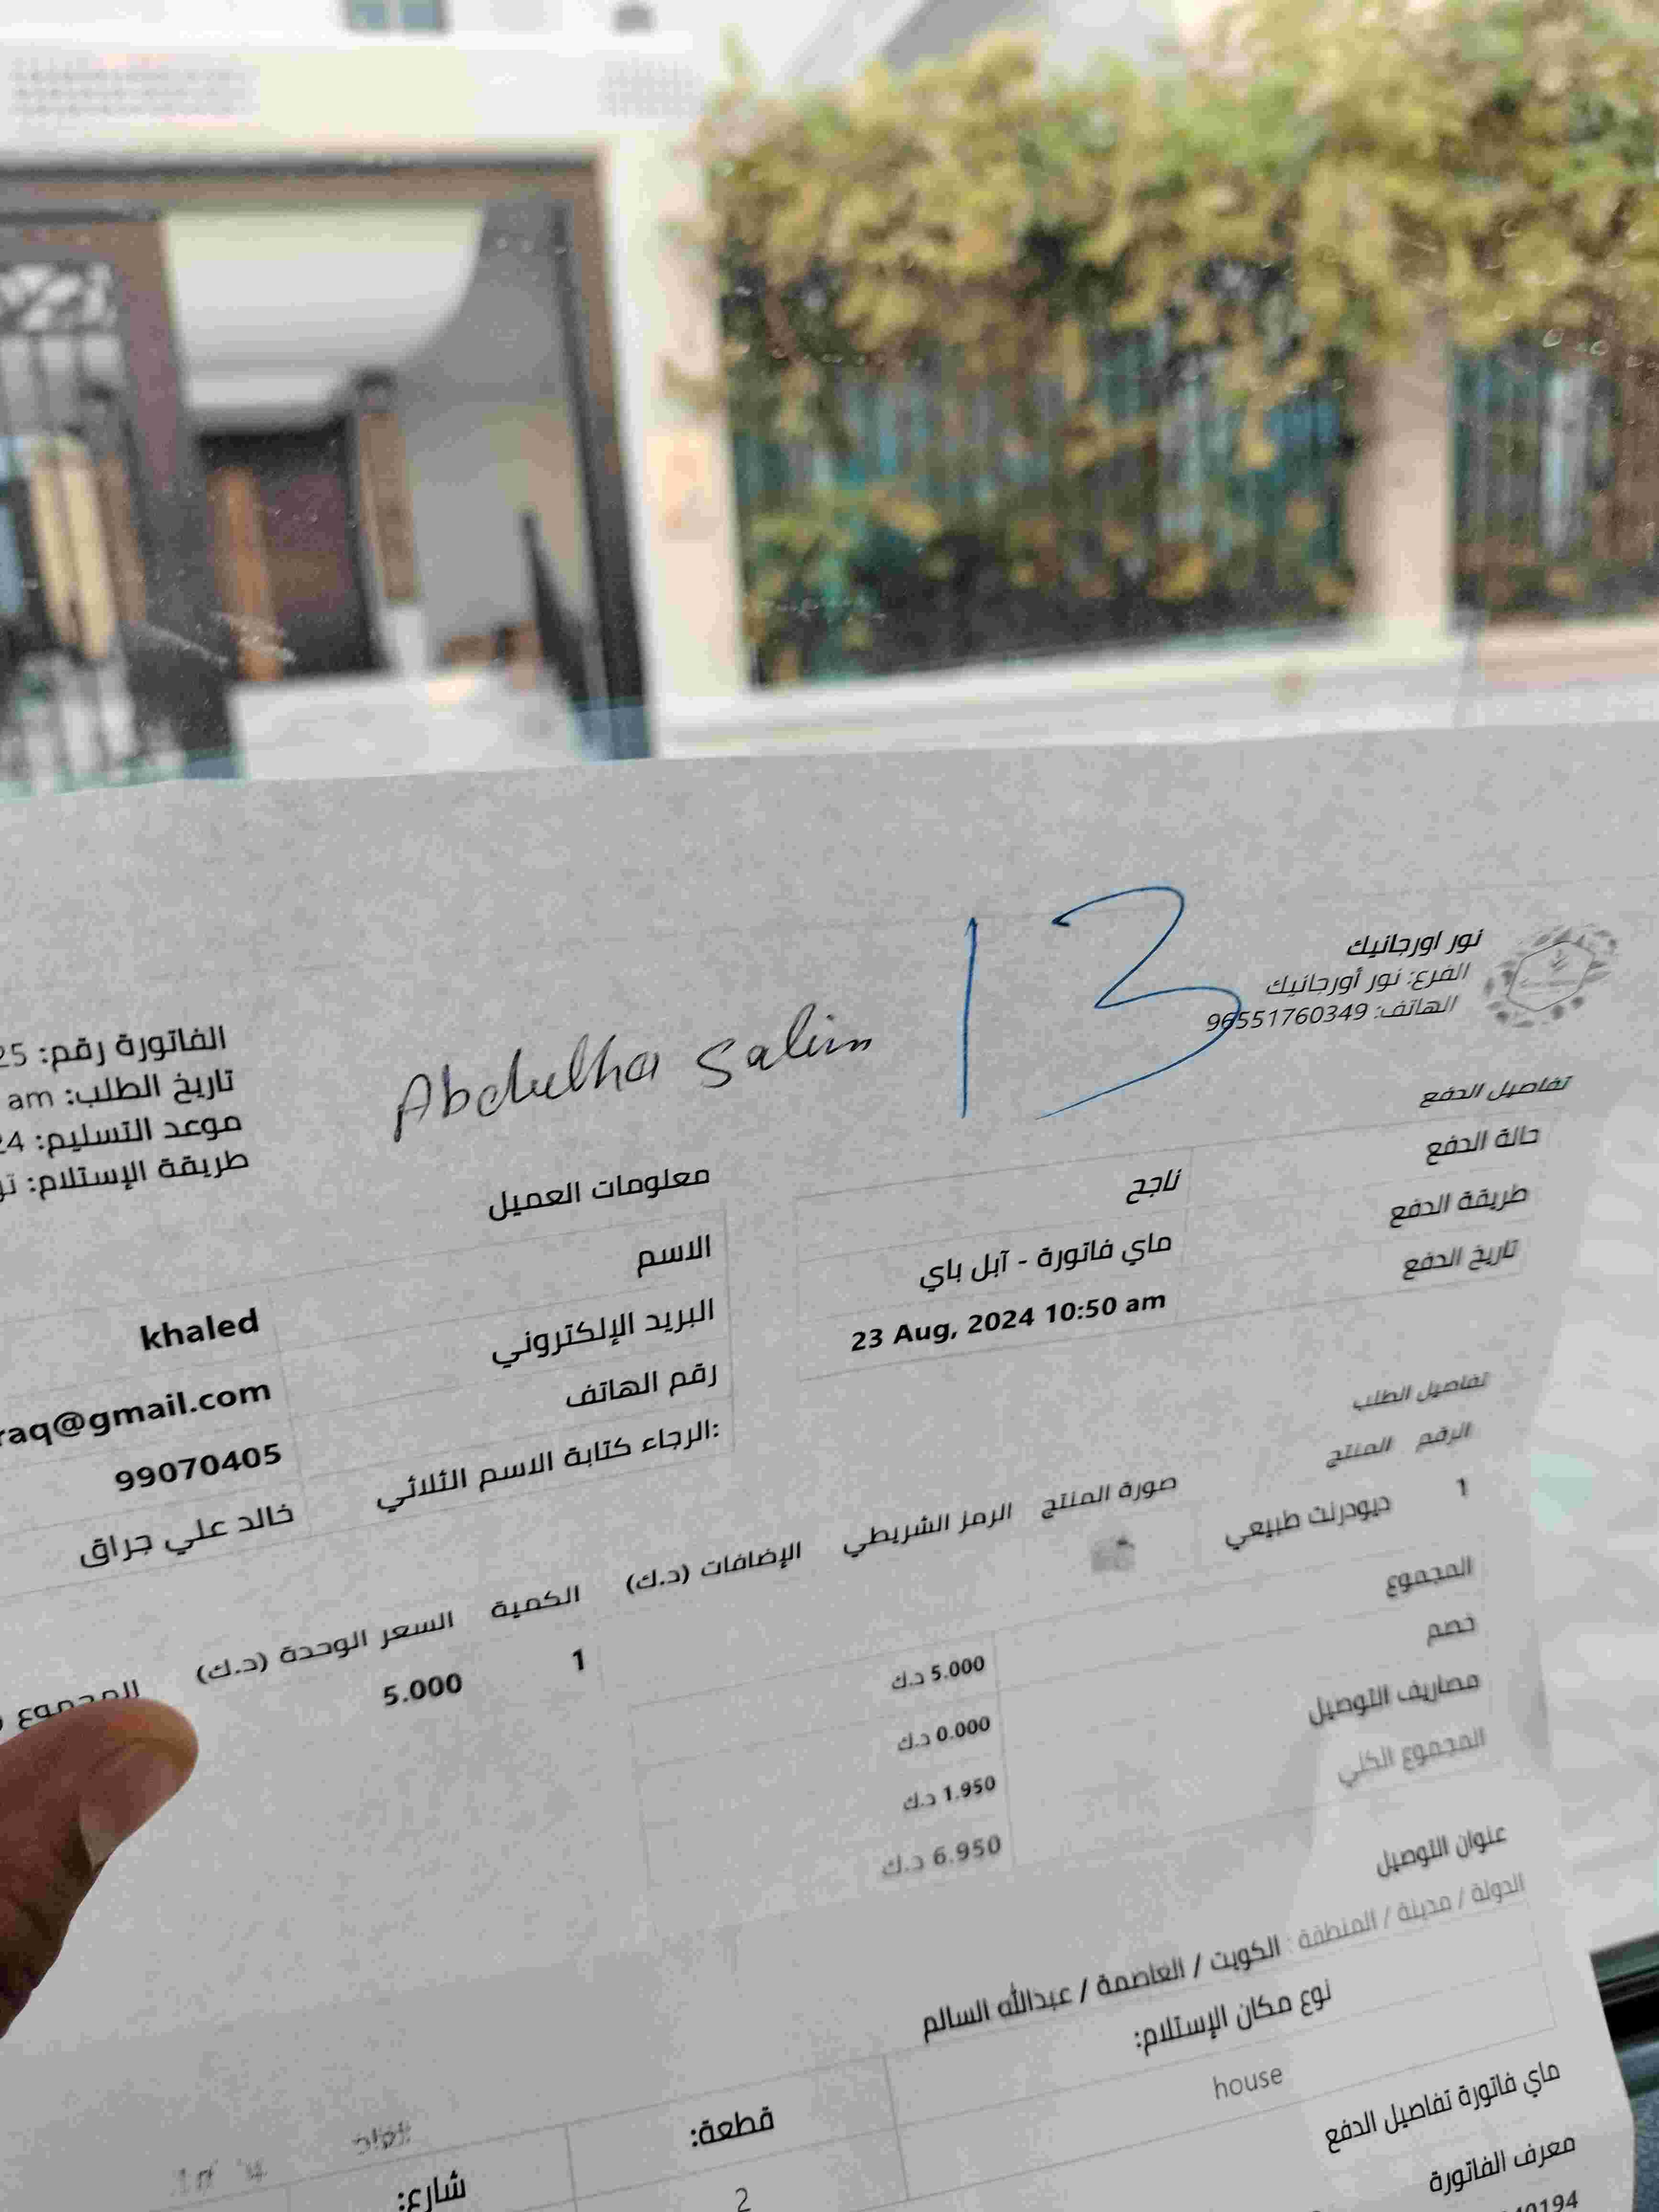 نور اورجانيك
الفرع: نور أورجانيك
الهاتف: 96551760349
13
Abdulha Salim
الفاتورة رقم: 25
تاريخ الطلب: am
موعد التسليم: 24
طريقة الإستلام:
تفاصيل الدفع
حالة الدفع ناجح
طريقة الدفع ماي فاتورة - آبل باي
تاريخ الدفع 23 Aug, 2024 10:50 am
معلومات العميل
الاسم khaled
البريد الإلكتروني raq@gmail.com
رقم الهاتف 99070405
الرجاء كتابة الاسم الثلاثي: خالد علي جراق
تفاصيل الطلب
الرقم المنتج صورة المنتج الرمز الشريطي الإضافات (د.ك) الكمية السعر الوحدة (د.ك) المجموع
1 ديودرنت طبيعي 1 5.000
المجموع 5.000 د.ك
خصم 0.000 د.ك
مصاريف التوصيل 1.950 د.ك
المجموع الكلي 6.950 د.ك
عنوان التوصيل
الدولة / مدينة / المنطقة : الكويت / العاصمة / عبدالله السالم
نوع مكان الإستلام:
house
قطعة:
2
شارع:
ماي فاتورة تفاصيل الدفع
معرف الفاتورة
40194